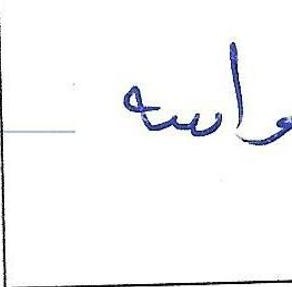 واسه